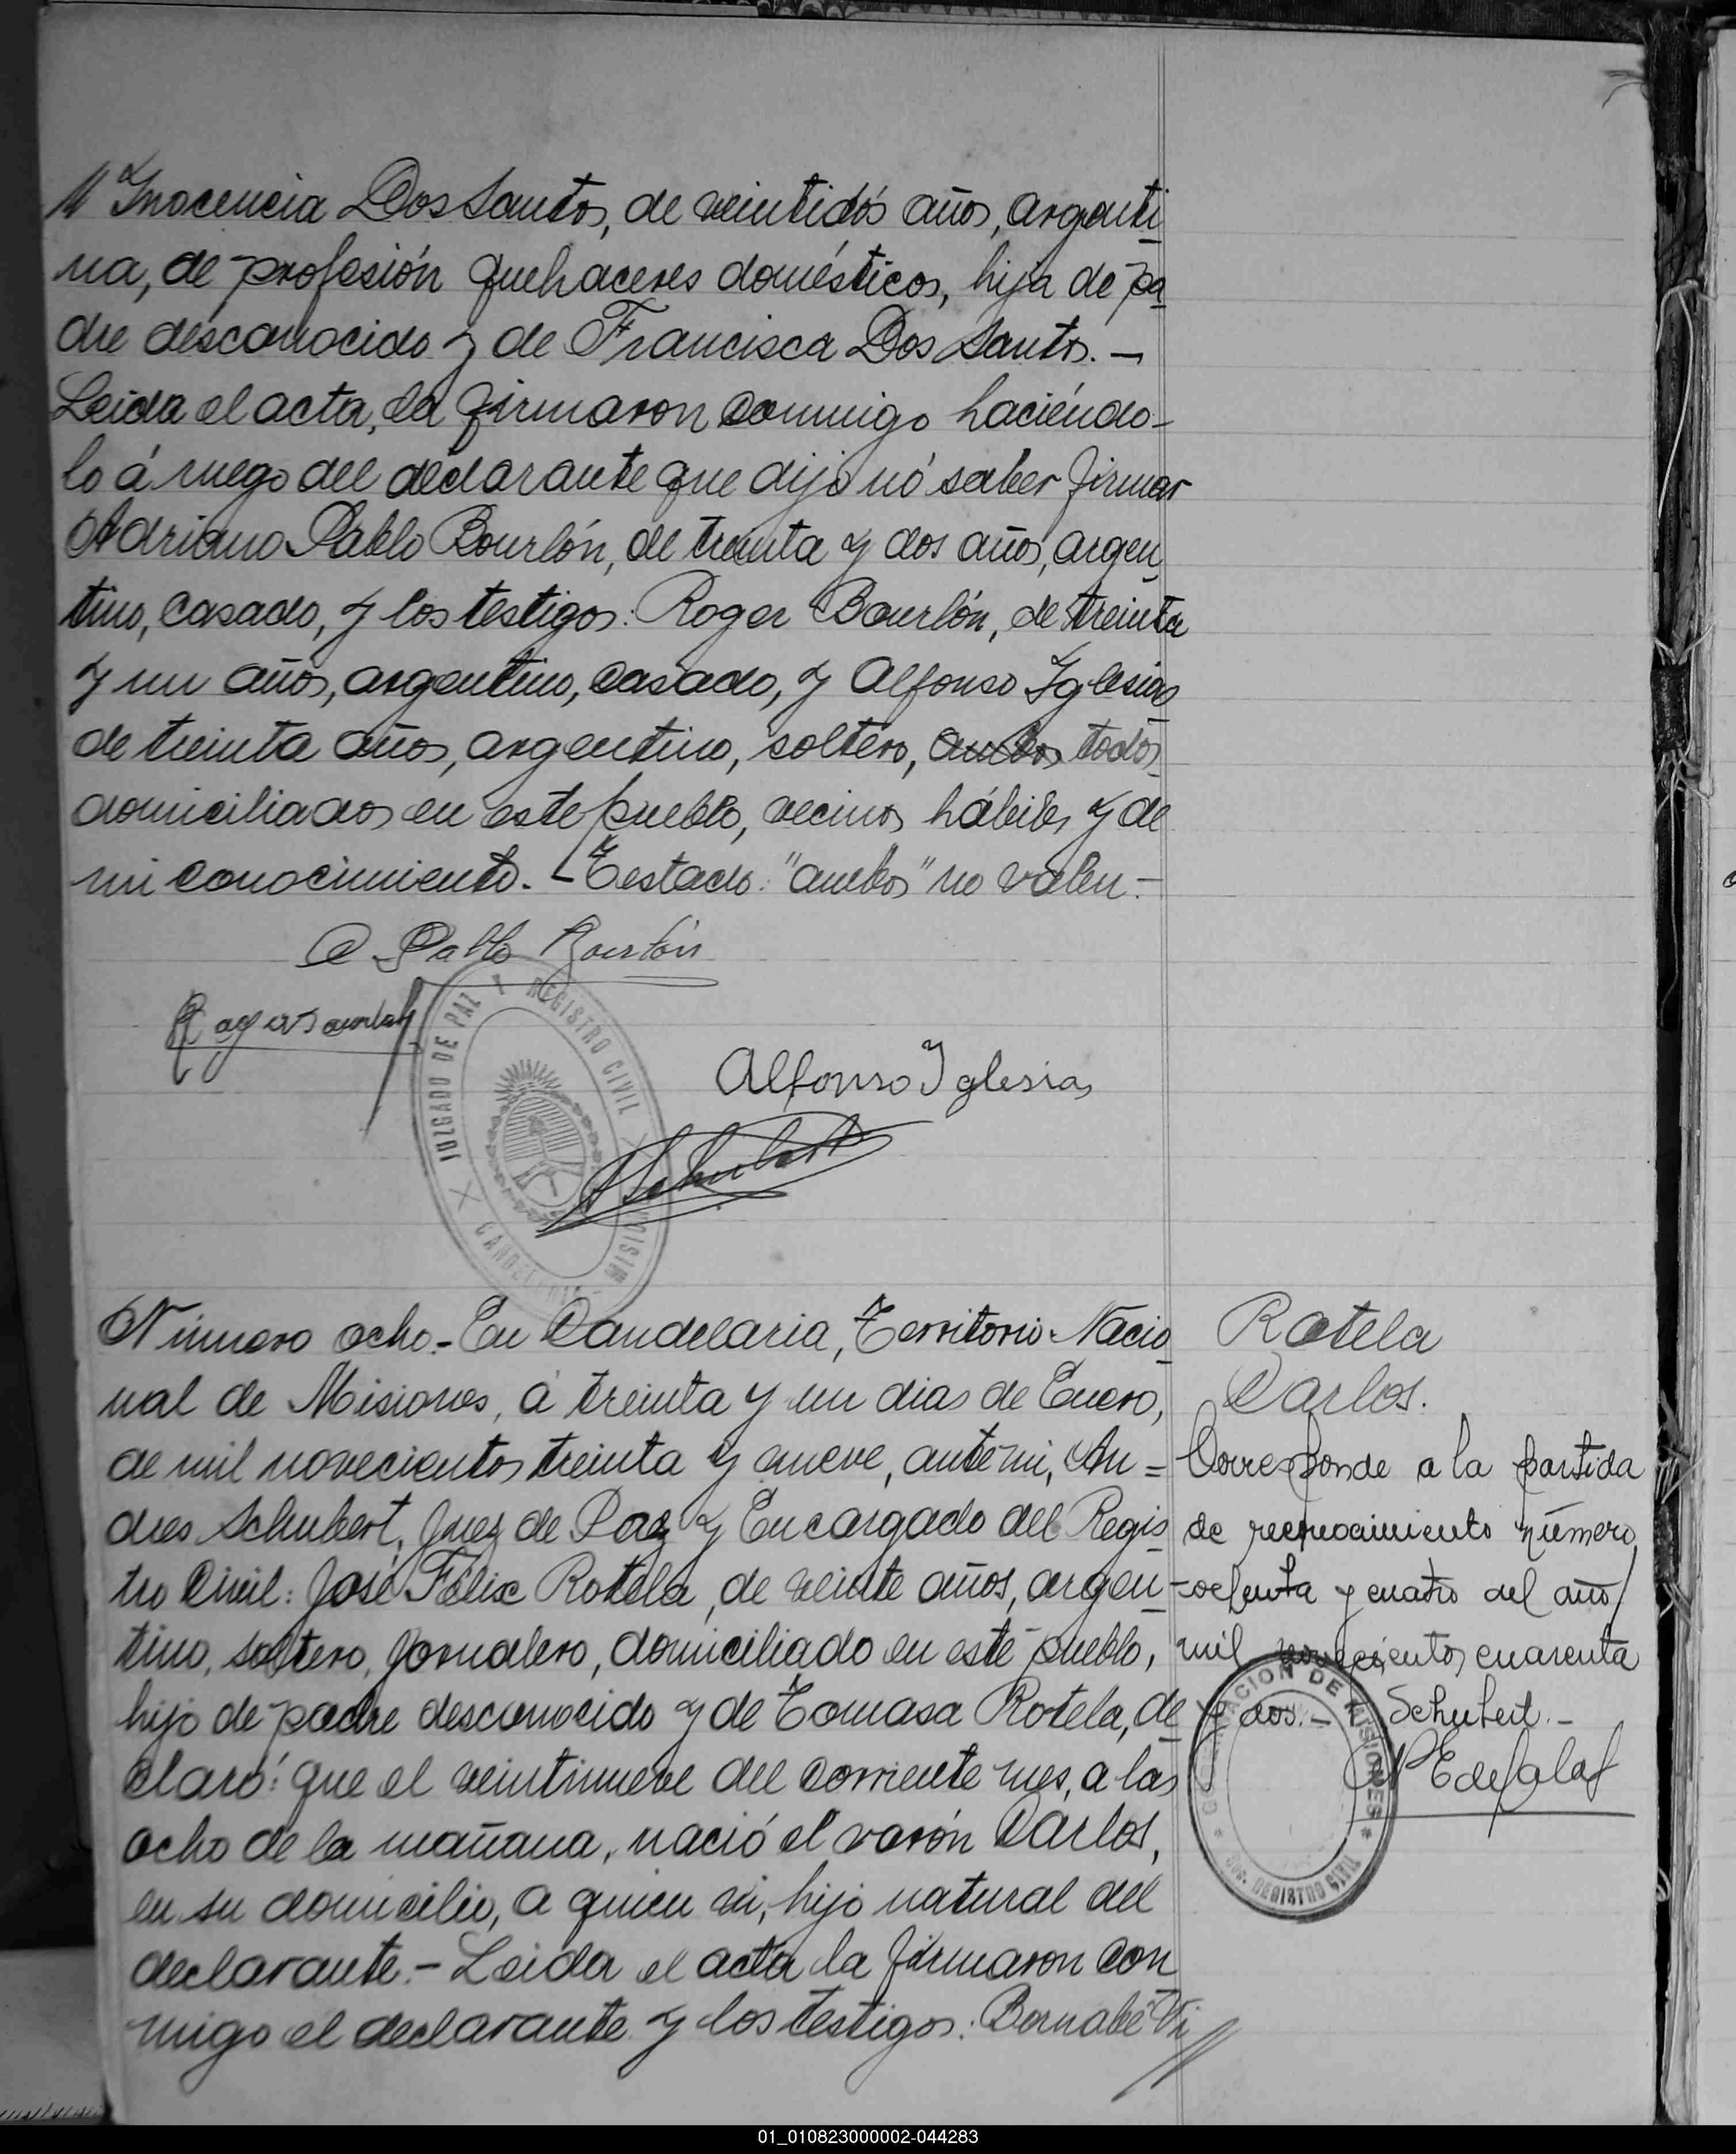 // Inocencia Dos Santos, de veintidós años, argenti
na, de profesión quehaceres domésticos, hija de pa
dre desconocido y de Francisca Dos Santos. —
Leida el acta, la firmaron conmigo haciéndo-
lo á ruego del declarante que dijo nó saber firmar
Adriano Pablo Bourlón, de treinta y dos años, argen
tino, casado, y los testigos: Roger Bourlón, de treinta
y un años, argentino, casado, y Alfonso Iglesias
de treinta años, argentino, soltero, ambos todos
domiciliados en este pueblo, vecinos hábiles y de
mi conocimiento. - Testado: "ambos" no valen.-
A Pablo Bourlón
Roger Bourlon
JUZGADO DE PAZ Y REGISTRO CIVIL
CANDELARIA
MISIONES
Alfonso Iglesias
ASchubert
Número ocho.- En Candelaria, Territorio Nacio
nal de Misiones, á treinta y un dias de Enero,
de mil novecientos treinta y nueve, ante mi, An=
dres Schubert, Juez de Paz y Encargado del Regis
tro Civil: José Félix Rotela, de veinte años, argen
tino, soltero, jornalero, domiciliado en este pueblo,
hijo de padre desconocido y de Tomasa Rotela, de
claró: que el veintinueve del corriente mes, a las
ocho de la mañana, nació el varón Carlos,
en su domicilio, a quien vi, hijo natural del
declarante.- Leida el acta la firmaron con
migo el declarante y los testigos: Bernabé Vi
//
Rotela
Carlos.
Corresponde a la partida
de reconocimiento número
ochenta y cuatro del año
mil novecientos cuarenta
y dos.- Schubert.-
GOBERNACION DE MISIONES
REGISTRO CIVIL
01_010823000002-044283